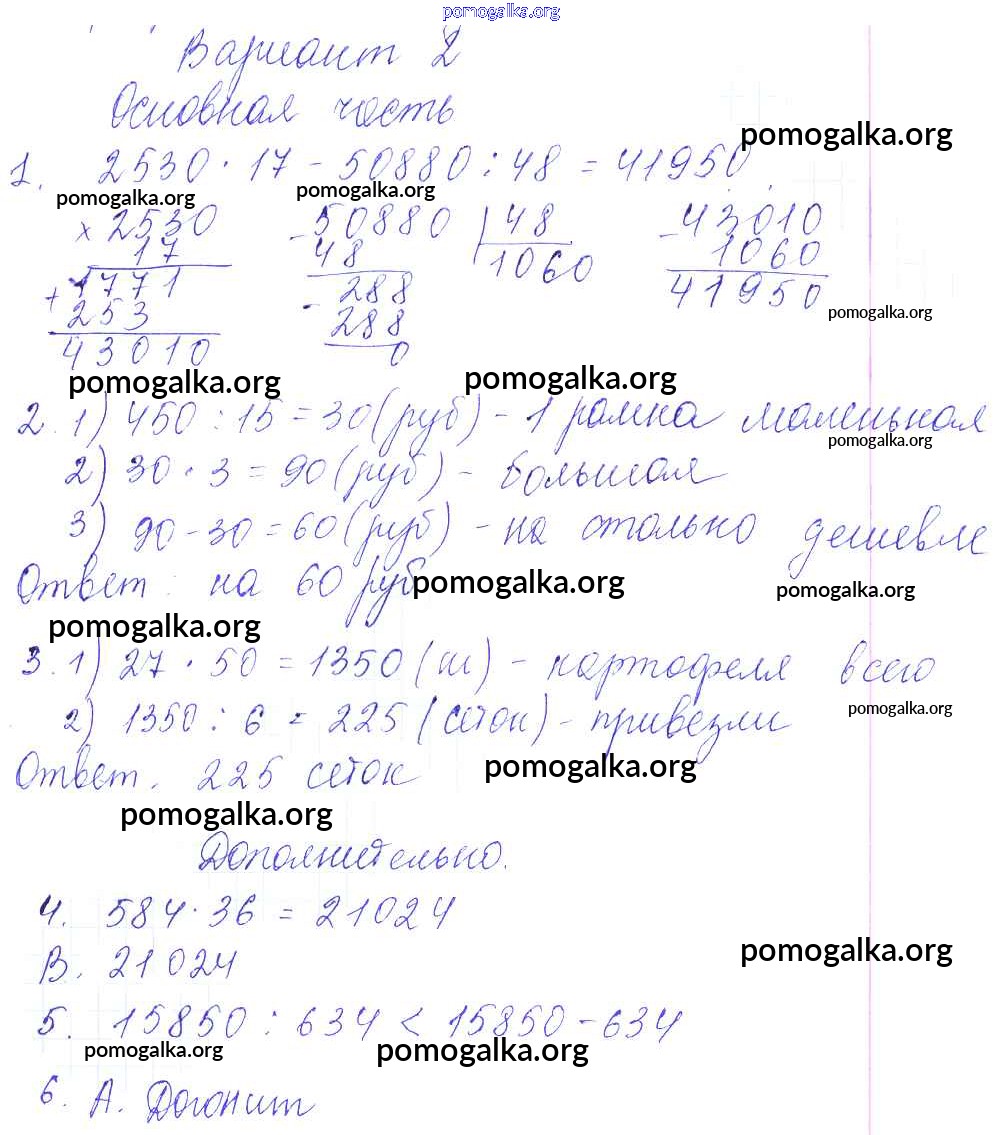 pomogalka.org
Вариант 2
Основная часть
pomogalka.org
1. 2530 · 17 - 50880 : 48 = 41950
pomogalka.org pomogalka.org
× 2530 - 50880 | 48 - 43010
17 48 1060 1060
1771 288 41950
+ 253 - 288 pomogalka.org
43010 0
pomogalka.org pomogalka.org
2. 1) 450 : 15 = 30 (руб) - 1 рамка маленькая
pomogalka.org
2) 30 · 3 = 90 (руб) - большая
3) 90 - 30 = 60 (руб) - на столько дешевле
Ответ: на 60 руб
pomogalka.org pomogalka.org
pomogalka.org
3. 1) 27 · 50 = 1350 (ш) - картофеля всего
pomogalka.org
2) 1350 : 6 = 225 (сеток) - привезли
Ответ. 225 сеток
pomogalka.org
pomogalka.org
Дополнительно.
4. 584 · 36 = 21024
В. 21024
pomogalka.org
5. 15850 : 634 < 15850 - 634
pomogalka.org pomogalka.org
6. А. Догонит